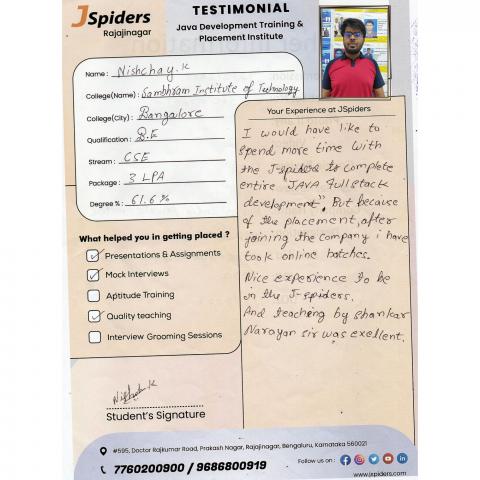 JSpiders
Rajajinagar
TESTIMONIAL
Java Development Training &
Placement Institute
Name : Nishchay.K
College(Name) : Sambhram Institute of Technology
College(City) : Bangalore
Qualification : B.E
Stream : CSE
Package : 3 LPA
Degree % : 61.6 %
What helped you in getting placed ?
Presentations & Assignments
Mock Interviews
Aptitude Training
Quality teaching
Interview Grooming Sessions
Your Experience at JSpiders
I would have like to
spend more time with
the J-spiders to complete
entire "JAVA Full stack
development". But because
of the placement, after
joining the company i have
took online batches.
Nice experience to be
in the J-spiders.
And teaching by Shankar
Narayan sir was exellent.
Student's Signature
#595, Doctor Rajkumar Road, Prakash Nagar, Rajajinagar, Bengaluru, Karnataka 560021
7760200900 / 9686800919
Follow us on :
www.jspiders.com